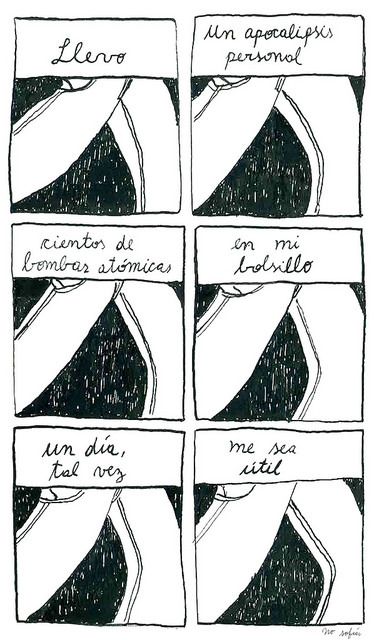 Llevo
un apocalipsis
personal
cientos de
bombas atómicas
en mi
bolsillo
un día,
tal vez
me sea
útil
no sofíes